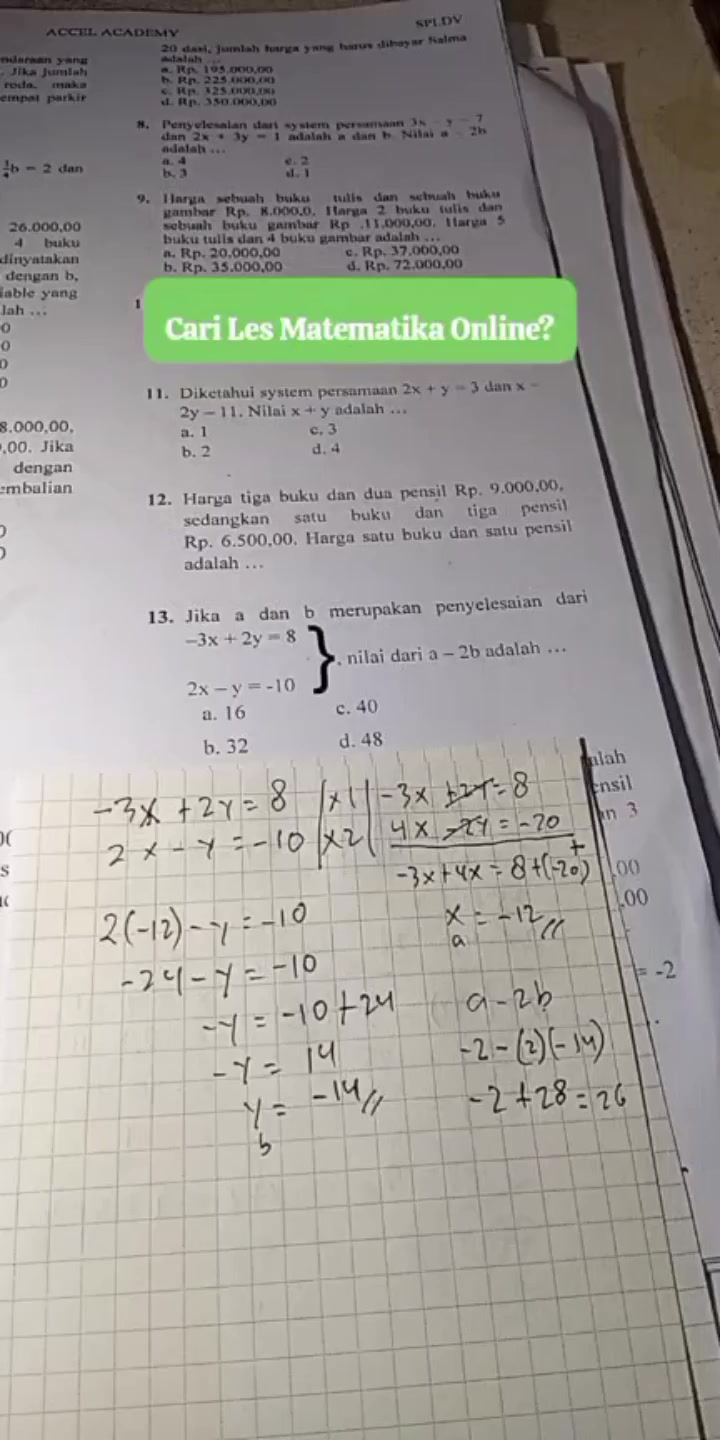 ACCEL ACADEMY
SPLDV
ndaraan yang
. Jika jumlah
roda, maka
empat parkir
b = 2 dan
26.000,00
4 buku
dinyatakan
dengan b,
iable yang
lah ...
0
0
0
0
8.000,00,
,00. Jika
dengan
embalian
20 dasi, jumlah harga yang harus dibayar Salma
adalah ...
a. Rp. 195.000,00
b. Rp. 225.000,00
c. Rp. 325.000,00
d. Rp. 350.000,00
8. Penyelesaian dari system persamaan 3x - y = 7
dan 2x + 3y = 1 adalah a dan b. Nilai a - 2b
adalah ...
a. 4 c. 2
b. 3 d. 1
9. Harga sebuah buku tulis dan sebuah buku
gambar Rp. 8.000,0. Harga 2 buku tulis dan
sebuah buku gambar Rp .11.000,00. Harga 5
buku tulis dan 4 buku gambar adalah ...
a. Rp. 20.000,00 c. Rp. 37.000,00
b. Rp. 35.000,00 d. Rp. 72.000,00
1
Cari Les Matematika Online?
11. Diketahui system persamaan 2x + y = 3 dan x -
2y = 11. Nilai x + y adalah ...
a. 1 c. 3
b. 2 d. 4
12. Harga tiga buku dan dua pensil Rp. 9.000,00,
sedangkan satu buku dan tiga pensil
Rp. 6.500,00. Harga satu buku dan satu pensil
adalah ...
13. Jika a dan b merupakan penyelesaian dari
-3x + 2y = 8
} , nilai dari a - 2b adalah ...
2x - y = -10
a. 16 c. 40
b. 32 d. 48
-3x + 2y = 8 |x1| -3x +2y = 8
2x - y = -10 |x2| 4x -2y = -20
+
-3x+4x = 8+(-20)
x = -12 //
a
2(-12) - y = -10
-24 - y = -10
-y = -10 + 24
-y = 14
y = -14 //
b
a - 2b
-2 - (2)(-14)
-2 + 28 = 26
alah
ensil
an 3
,00
,00
= -2